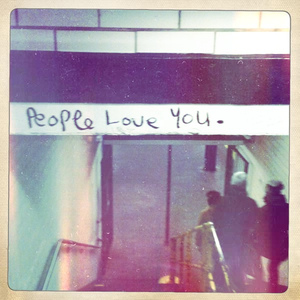 People Love You.